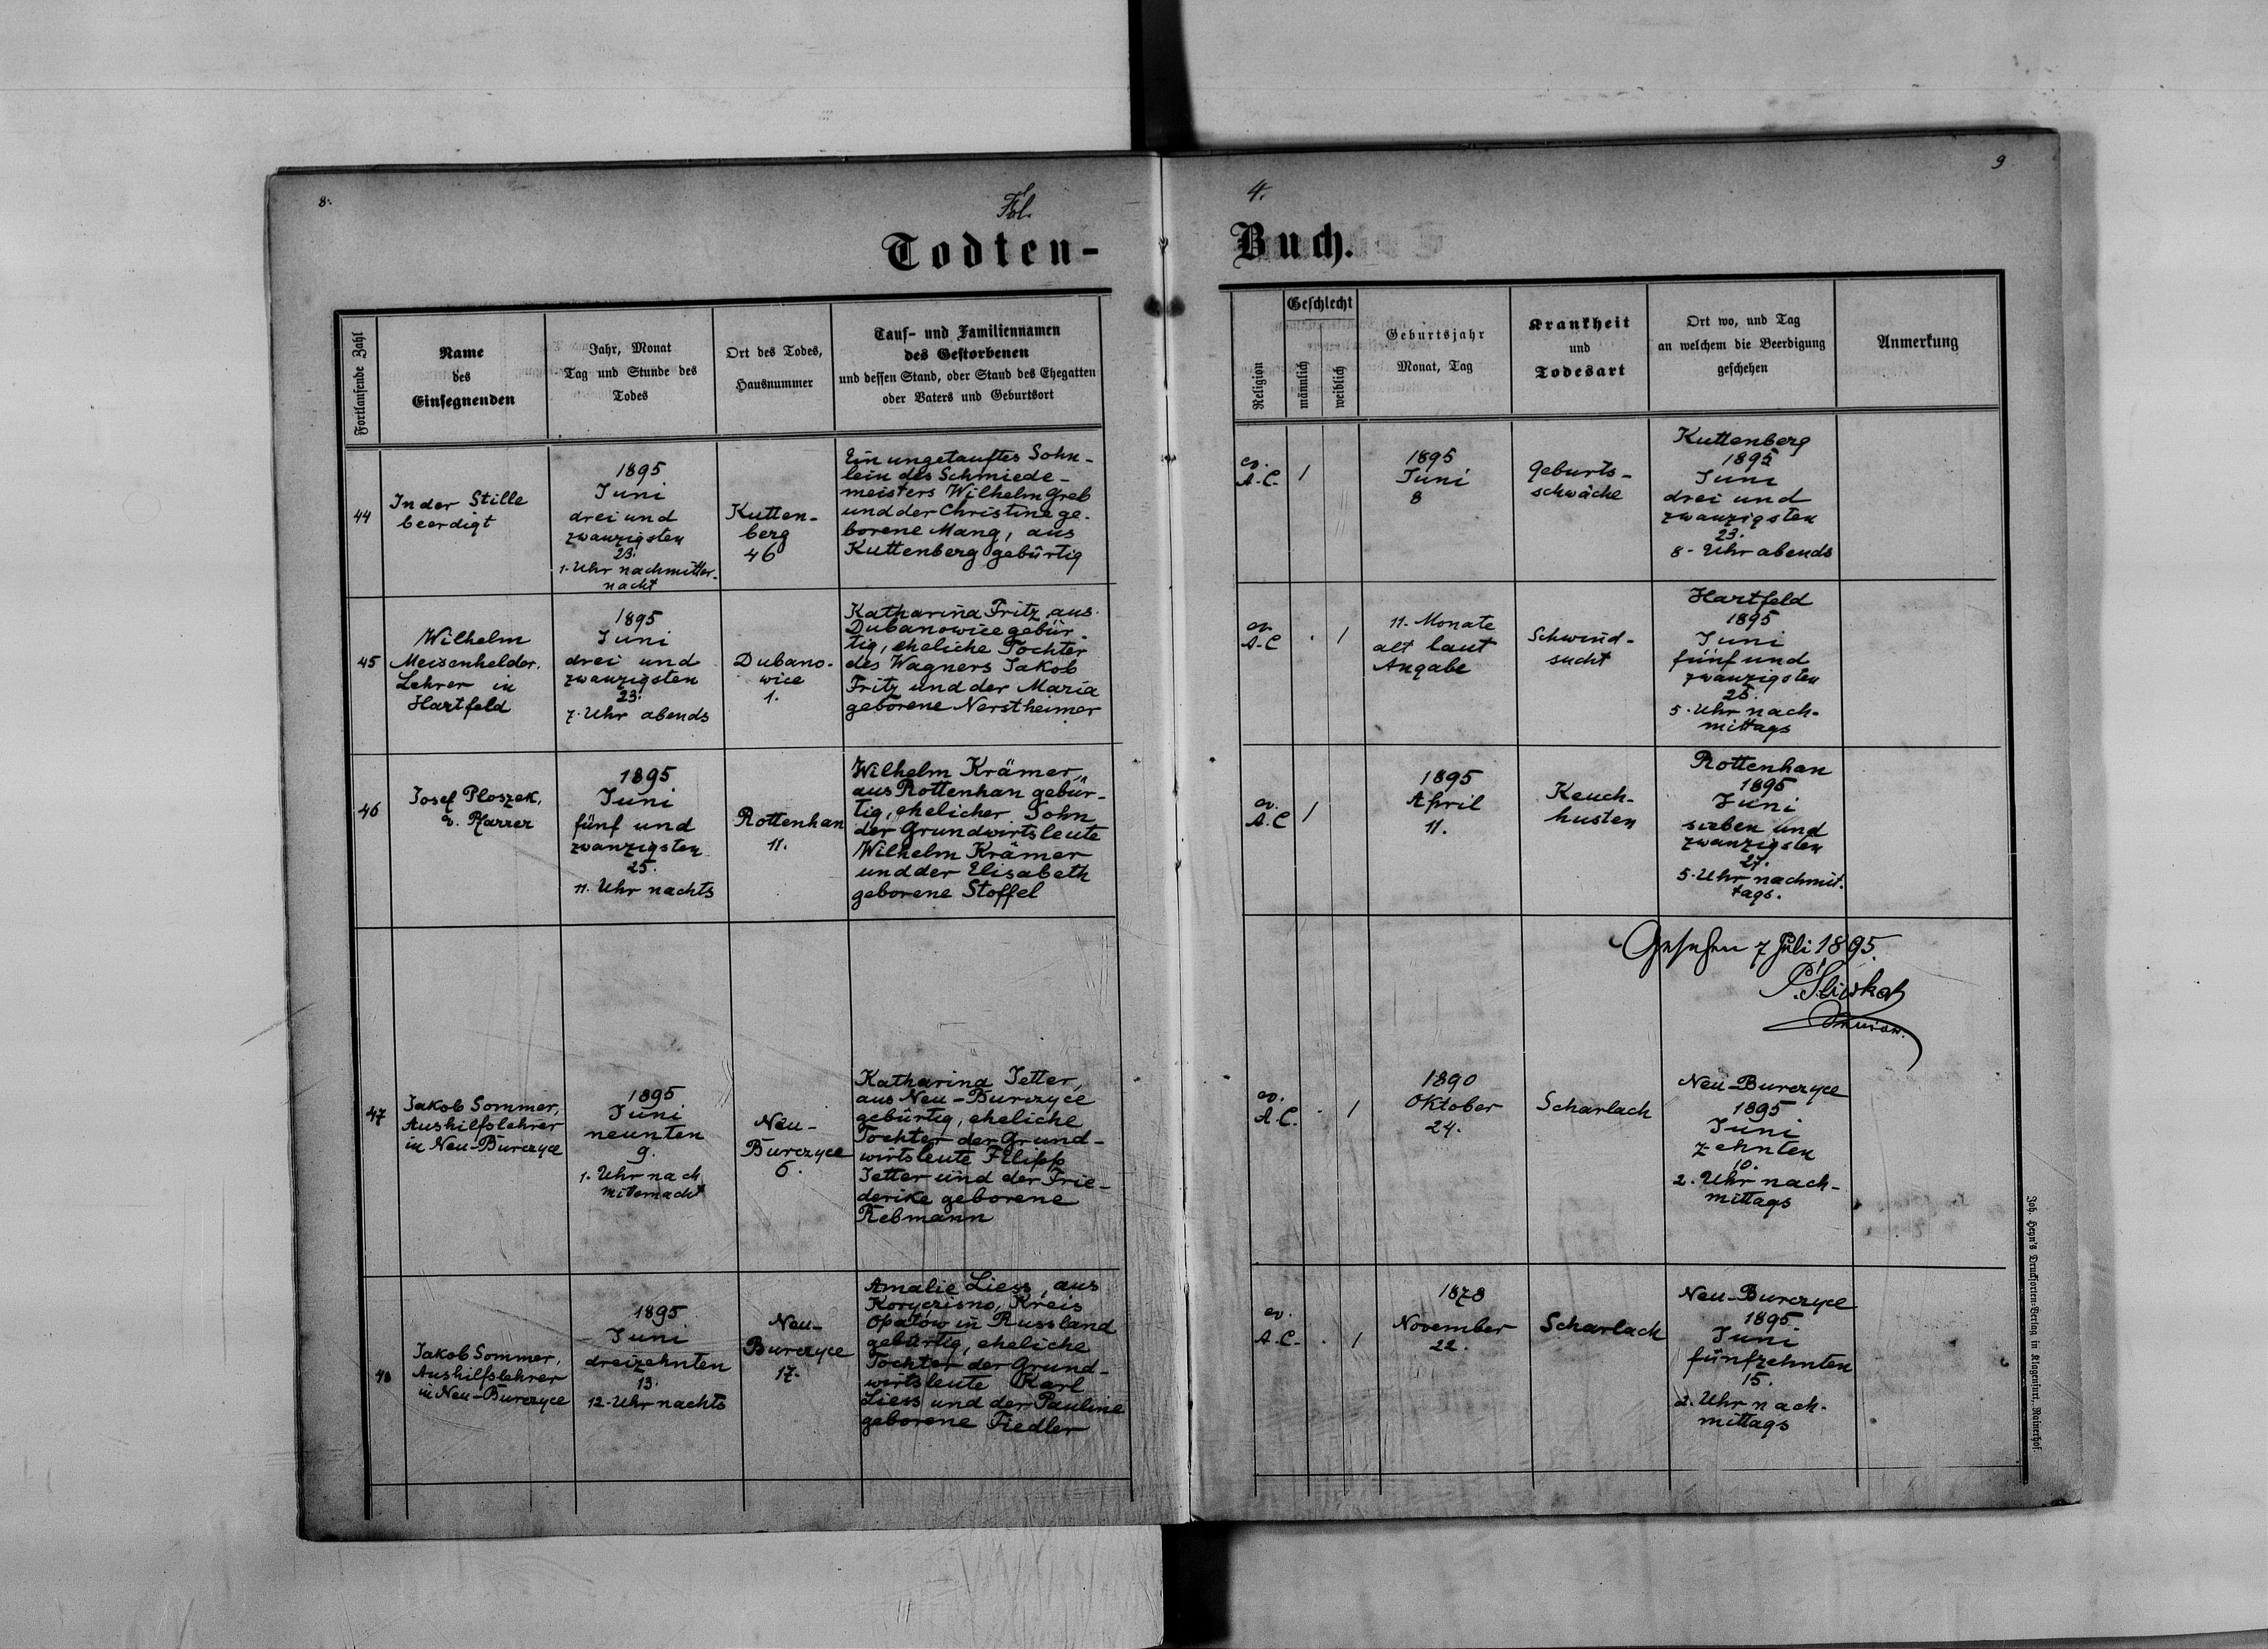 8.
Fol.
4.
9
Todten-
Buch.
Fortlaufende Zahl
Name
des
Einsegnenden
Jahr, Monat
Tag und Stunde des
Todes
Ort des Todes,
Hausnummer
Tauf- und Familiennamen
des Gestorbenen
und dessen Stand, oder Stand des Ehegatten
oder Vaters und Geburtsort
Religion
Geschlecht
männlich
weiblich
Geburtsjahr
Monat, Tag
Krankheit
und
Todesart
Ort wo, und Tag
an welchem die Beerdigung
geschehen
Anmerkung
44
In der Stille
beerdigt
1895
Juni
drei und
zwanzigsten
23.
1. Uhr nachmitter-
nacht
Kutten-
berg
46
Ein ungetauftes Söhn-
lein des Schmiede-
meisters Wilhelm Greb
und der Christine ge-
borene Mang, aus
Kuttenberg gebürtig
ev.
A.C.
1
1895
Juni
8
Geburts-
schwäche
Kuttenberg
1895
Juni
drei und
zwanzigsten
23.
8-Uhr abends
45
Wilhelm
Meisenhelder,
Lehrer in
Hartfeld
1895
Juni
drei und
zwanzigsten
23.
7. Uhr abends
Dubano-
wice
1.
Katharina Fritz, aus
Dubanowice gebür-
tig, eheliche Tochter
des Wagners Jakob
Fritz und der Maria
geborene Nerstheimer
ev.
A.C
. 1
11. Monate
alt laut
Angabe
Schwind-
sucht
Hartfeld
1895
Juni
fünf und
zwanzigsten
25.
5. Uhr nach-
mittags
46
Josef Ploszek,
ev. Pfarrer
1895
Juni
fünf und
zwanzigsten
25.
11. Uhr nachts
Rottenhan
11.
Wilhelm Krämer,
aus Rottenhan gebür-
tig, ehelicher Sohn
der Grundwirtsleute
Wilhelm Krämer
und der Elisabeth
geborene Stoffel
ev.
A.C
1
1895
April
11.
Keuch-
husten
Rottenhan
1895
Juni
sieben und
zwanzigsten
27.
5. Uhr nachmit-
tags.
Gesehen 7 Juli 1895.
47
Jakob Sommer,
Aushilfslehrer
in Neu-Burczyce
1895
Juni
neunten
9.
1. Uhr nach
mitternacht
Neu-
Burczyce
6.
Katharina Jetter,
aus Neu-Burczyce
gebürtig, eheliche
Tochter der Grund-
wirtsleute Filipp
Jetter und der Frie-
derike geborene
Rebmann
ev.
A.C.
. 1
1890
Oktober
24.
Scharlach
Neu-Burczyce
1895
Juni
zehnten
10.
2. Uhr nach-
mittags
48
Jakob Sommer,
Aushilfslehrer
in Neu-Burczyce
1895
Juni
dreizehnten
13.
12-Uhr nachts
Neu-
Burczyce
17.
Amalie Liess, aus
Koryczisno, Kreis
Opatów in Russland
gebürtig, eheliche
Tochter der Grund-
wirtsleute Karl
Liess und der Pauline
geborene Fiedler
ev.
A.C.
. 1
1878
November
22.
Scharlach
Neu-Burczyce
1895.
Juni
fünfzehnten
15.
2. Uhr nach-
mittags
Joh. Heyn's Drucksorten-Verlag in Klagenfurt, Rainerhof.